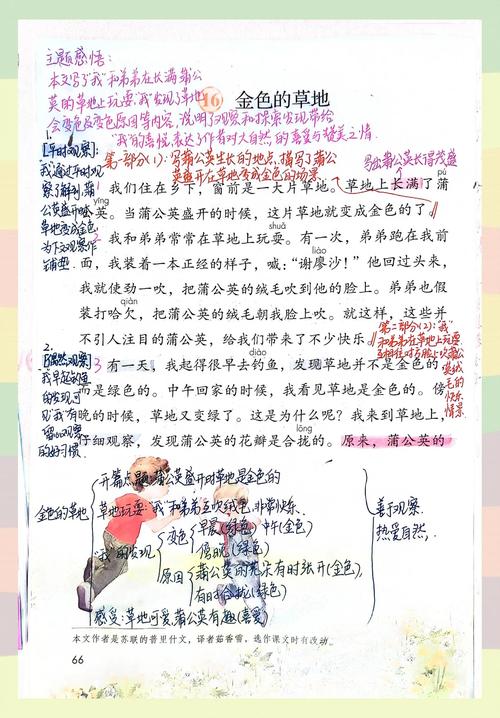 主题感悟:
本文写了“我”和弟弟在长满蒲公
英的草地上玩耍,“我”发现了草地
会变色及变色原因等内容,说明了观察和探索发现带给
“我”的喜悦,表达了作者对大自然的喜爱与赞美之情.
16 金色的草地
第一部分(1):写蒲公英生长的地点,描写了蒲公
英盛开草地变成金色的场景
写出蒲公英长得茂盛
1.
[早时观察]
“我”通过
观察
了解到,蒲
公英盛开时,
草地变成金色,
为下文观察作
铺垫.
1 我们住在乡下,窗前是一大片草地。草地上长满了蒲
pú
yīng
公英。当蒲公英盛开的时候,这片草地就变成金色的了。
shuǎ
2 我和弟弟常常在草地上玩耍。有一次,弟弟跑在我前
liào
面,我装着一本正经的样子,喊:“谢廖沙!”他回过头来,
我就使劲一吹,把蒲公英的绒毛吹到他的脸上。弟弟也假
qiàn
装打哈欠,把蒲公英的绒毛朝我脸上吹。就这样,这些并
不引人注目的蒲公英,给我们带来了不少快乐。
第二部分(2):“我”
和弟弟在草地上玩耍,
互相往对方脸上吹蒲公
英绒
毛的
快乐
情景.
2.
[偶然观察]
我早起钓鱼
的发现,可
见“我”有
留心观察
的好习惯.
diào
3 有一天,我起得很早去钓鱼,发现草地并不是金色的,
而是绿色的。中午回家的时候,我看见草地是金色的。傍
晚的时候,草地又变绿了。这是为什么呢?我来到草地上,
lǒng
仔细观察,发现蒲公英的花瓣是合拢的。原来,蒲公英的
金色的草地
开篇点题:蒲公英盛开时草地是金色的
草地玩耍:“我”和弟弟互吹绒毛,非常快乐.
“我”的发现
变色
早晨(绿色) 中午(金色)
傍晚(绿色)
原因
蒲公英的花朵有时张开(金色),
有时合拢(绿色)
感受:草地可爱,蒲公英有趣(喜爱)
善于观察,
热爱自然,
本文作者是苏联的普里什文,译者茹香雪,选作课文时有改动。
66